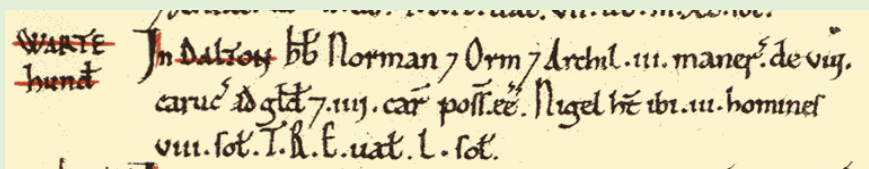 WARTE hund
In DALTON hb Norman ⁊ Orm ⁊ Archil .iii. maner. de viij.
caruc ad gld ⁊ .iiij. car poss. ee. Nigel ht ibi .iii. homines
viii. sol. T. R. E. ual. L. sol.